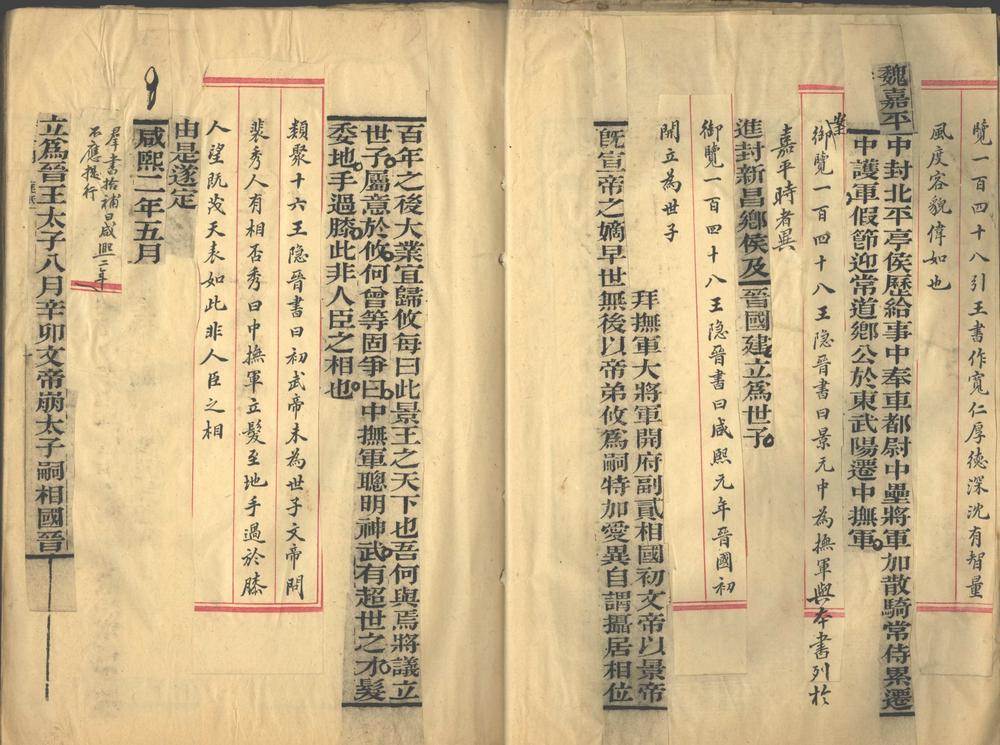 覽一百四十八引王書作寬仁厚德深沈有智量
風度容貌偉如也
魏嘉平中封北平亭侯歷給事中奉車都尉中壘將軍加散騎常侍累遷
中護軍假節迎常道鄉公於東武陽遷中撫軍
御覽一百四十八王隐晉書曰景元中為撫軍與本書列於
嘉平時者異
進封新昌鄉侯及晉國建立爲世子
御覽一百四十八王隐晉書曰咸熙元年晉國初
開立為世子
拜撫軍大將軍開府副貳相國初文帝以景帝
旣宣帝之嫡早世無後以帝弟攸爲嗣特加愛異自謂攝居相位
百年之後大業宜歸攸每曰此景王之天下也吾何與焉將議立
世子屬意於攸何曾等固爭曰中撫軍聰明神武有超世之才髮
委地手過膝此非人臣之相也
類聚十六王隐晉書曰初武帝未為世子文帝問
裴秀人有相否秀曰中撫軍立髮至地手過於膝
人望既茂天表如此非人臣之相
由是遂定
咸熙二年五月
羣書拾補曰咸熙二年
不應提行
立爲晉王太子八月辛卯文帝崩太子嗣相國晉